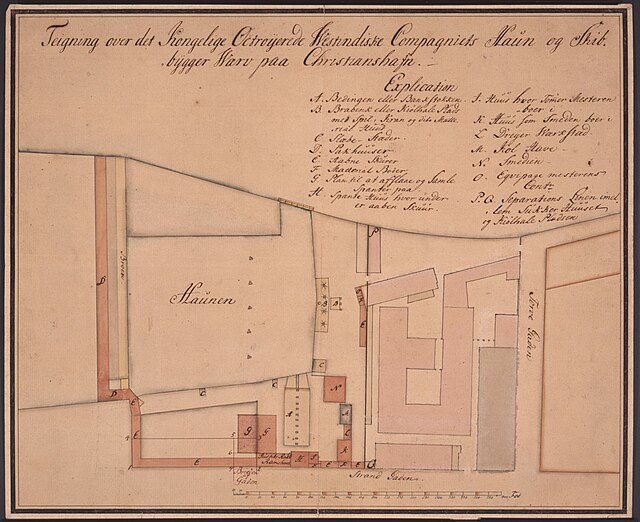 Teigning over det Kongelige Octroÿerede Westindiske Compagniets Haun og Skib.
bygger Warv paa Christianshafn.
Explication
A. Bedingen eller Bankstokken
B. Brabenk eller Kiölhale Plads
med Spil, Kran og dito Matte.
real Huus
C. Slæbe-Stæder.
D. Pakhuuser.
E. Aabne Skurer
F. Material Boder.
G. Plan til at afslaae og Samle
Spanter paa.
H. Spante Huus hvor under
er aaben Skuur.
I. Huus hvor Tømer Mesteren
boer i
K. Huus som Smeden boer i
L. Dreyer Værkstad
M. Kol Have
N. Smeden
O. Eqvipage mesterens
Cont.
P.Q. Separations Linien imel.
lem Sukker Huuset
og Kiölhale Pladsen
Haunen
D
P
B
E
C
C
C
A
N
A
L
K
D
E
E
G
G
H
F
E
F
E
E
Strand Gaden.
Torve Gaden